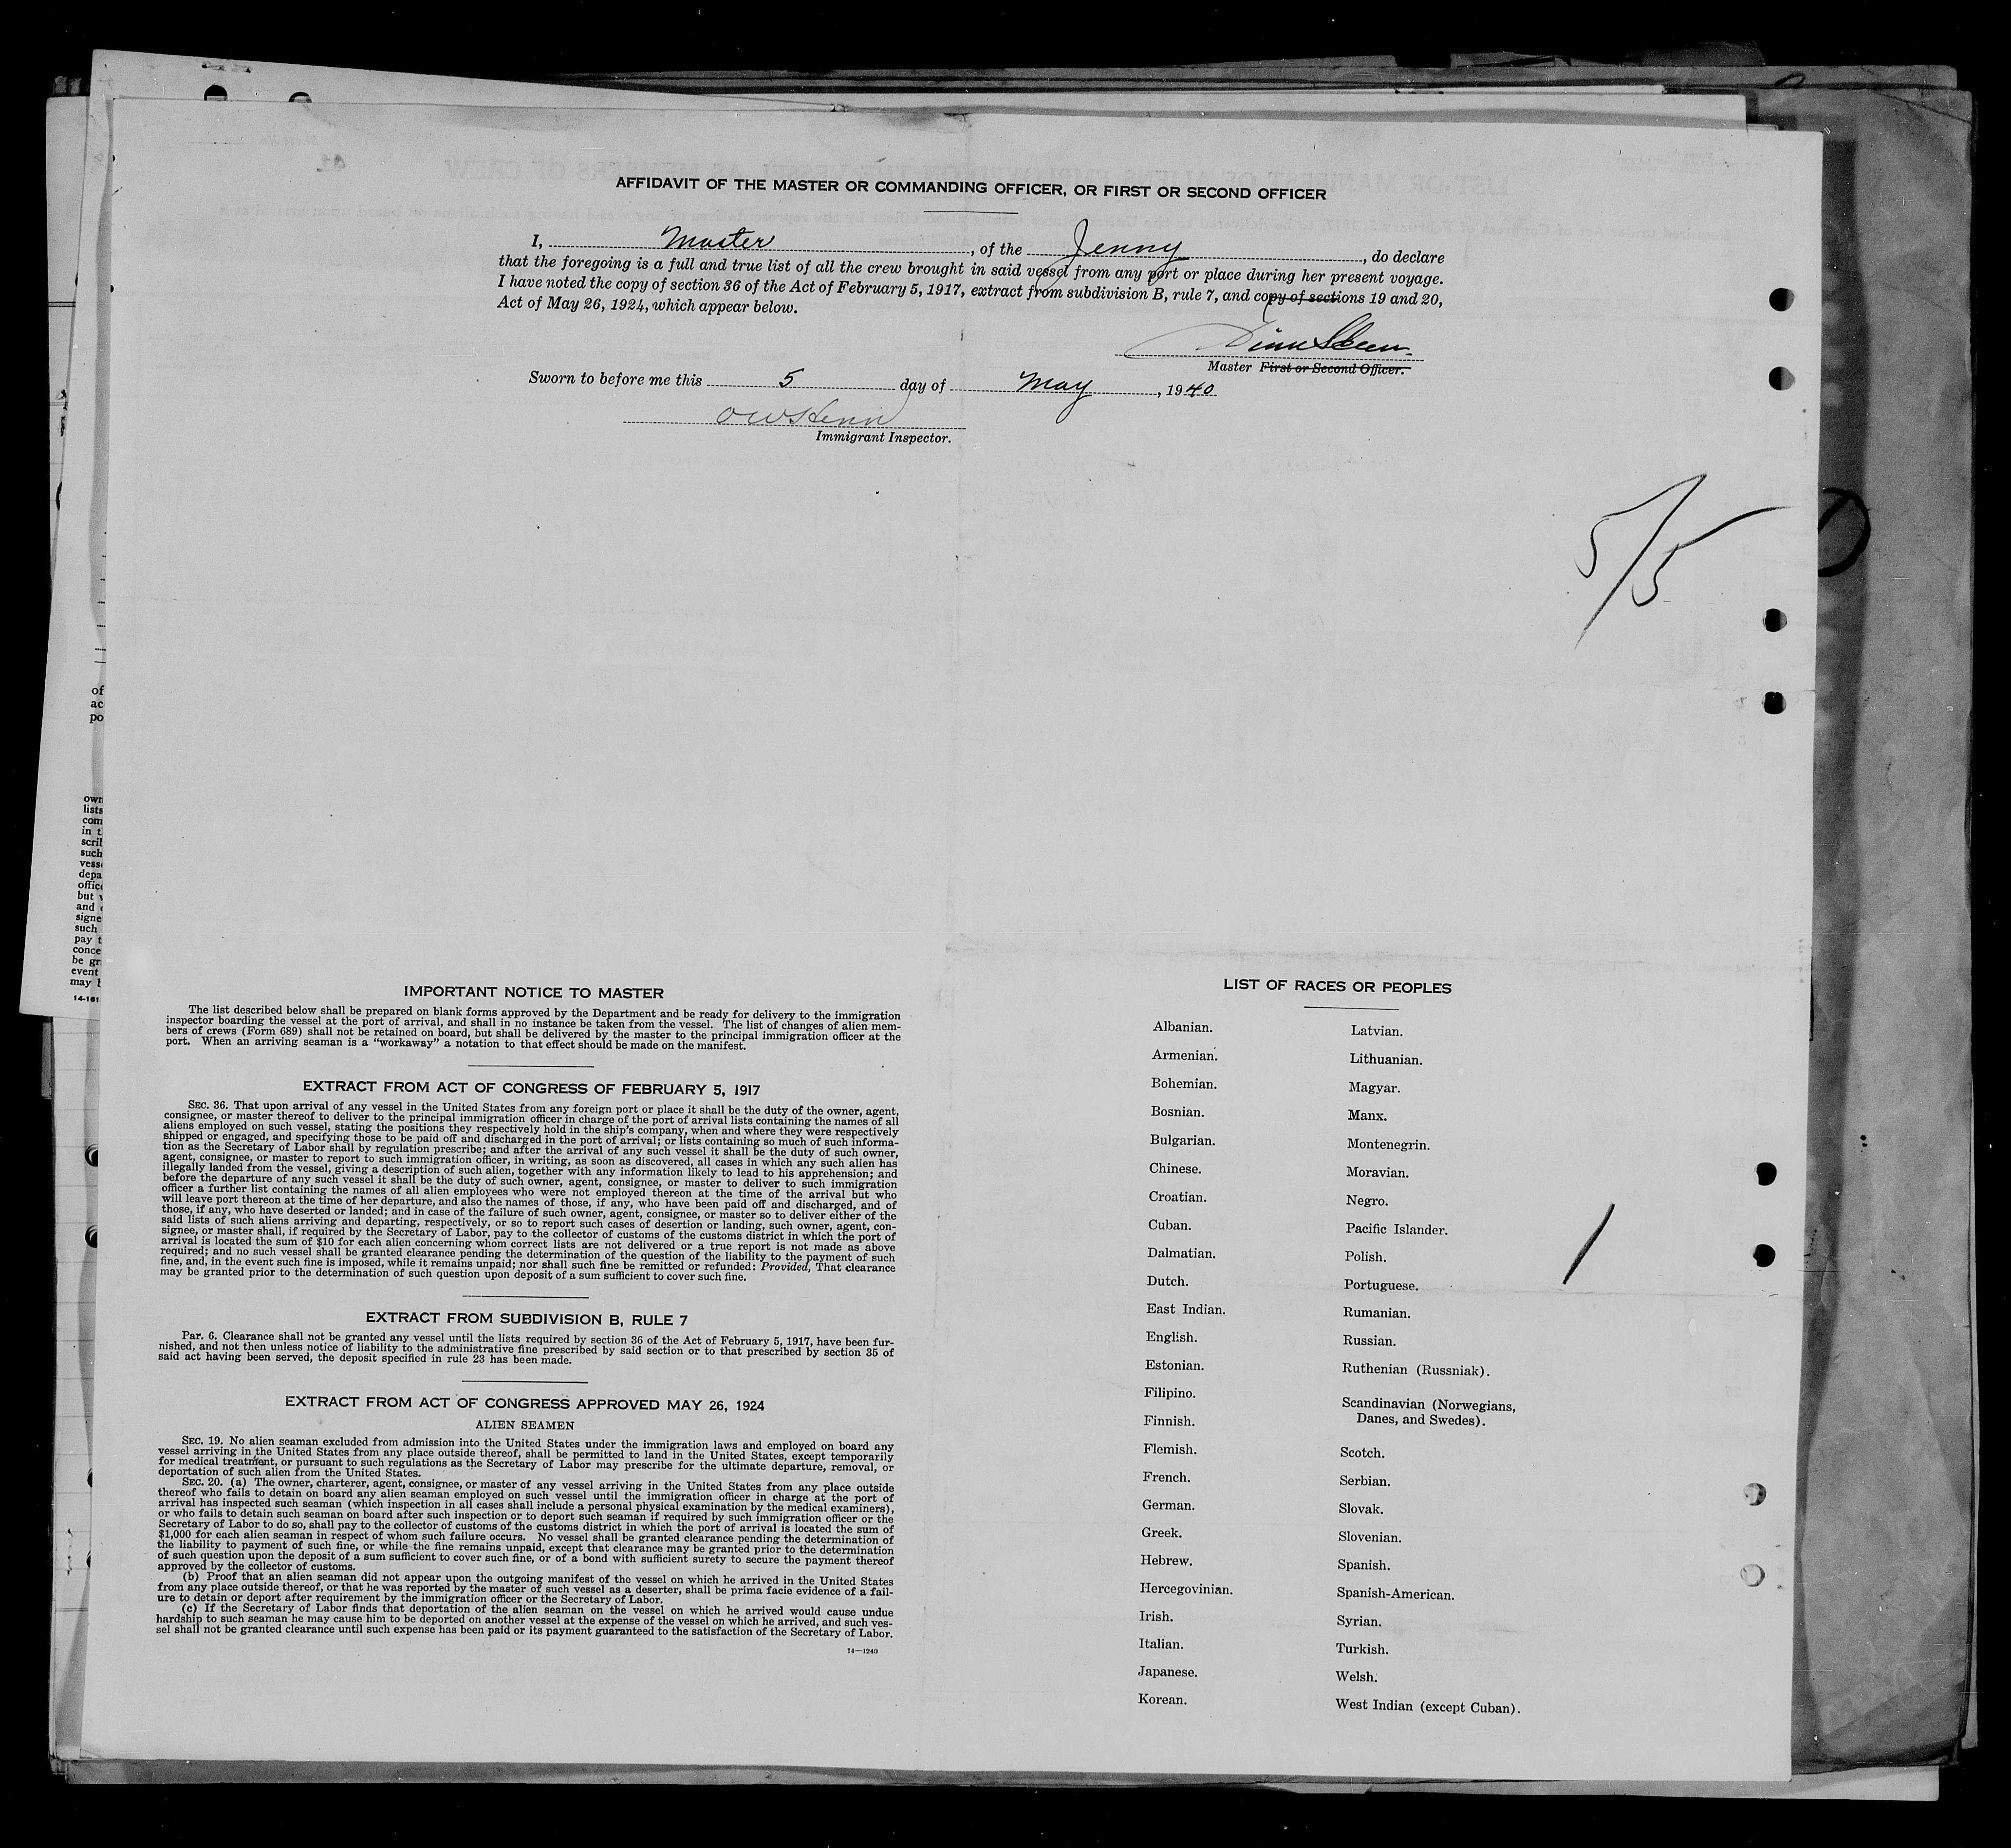 AFFIDAVIT OF THE MASTER OR COMMANDING OFFICER, OR FIRST OR SECOND OFFICER
I, Master, of the Jenny, do declare
that the foregoing is a full and true list of all the crew brought in said vessel from any port or place during her present voyage.
I have noted the copy of section 36 of the Act of February 5, 1917, extract from subdivision B, rule 7, and copy of sections 19 and 20,
Act of May 26, 1924, which appear below.
Master First or Second Officer.
Sworn to before me this 5 day of May, 1940
Immigrant Inspector.
5/5
IMPORTANT NOTICE TO MASTER
The list described below shall be prepared on blank forms approved by the Department and be ready for delivery to the immigration
inspector boarding the vessel at the port of arrival, and shall in no instance be taken from the vessel. The list of changes of alien mem-
bers of crews (Form 689) shall not be retained on board, but shall be delivered by the master to the principal immigration officer at the
port. When an arriving seaman is a "workaway" a notation to that effect should be made on the manifest.
EXTRACT FROM ACT OF CONGRESS OF FEBRUARY 5, 1917
SEC. 36. That upon arrival of any vessel in the United States from any foreign port or place it shall be the duty of the owner, agent,
consignee, or master thereof to deliver to the principal immigration officer in charge of the port of arrival lists containing the names of all
aliens employed on such vessel, stating the positions they respectively hold in the ship's company, when and where they were respectively
shipped or engaged, and specifying those to be paid off and discharged in the port of arrival; or lists containing so much of such informa-
tion as the Secretary of Labor shall by regulation prescribe; and after the arrival of any such vessel it shall be the duty of such owner,
agent, consignee, or master to report to such immigration officer, in writing, as soon as discovered, all cases in which any such alien has
illegally landed from the vessel, giving a description of such alien, together with any information likely to lead to his apprehension; and
before the departure of any such vessel it shall be the duty of such owner, agent, consignee, or master to deliver to such immigration
officer a further list containing the names of all alien employees who were not employed thereon at the time of the arrival but who
will leave port thereon at the time of her departure, and also the names of those, if any, who have been paid off and discharged, and of
those, if any, who have deserted or landed; and in case of the failure of such owner, agent, consignee, or master so to deliver either of the
said lists of such aliens arriving and departing, respectively, or so to report such cases of desertion or landing, such owner, agent, con-
signee, or master shall, if required by the Secretary of Labor, pay to the collector of customs of the customs district in which the port of
arrival is located the sum of $10 for each alien concerning whom correct lists are not delivered or a true report is not made as above
required; and no such vessel shall be granted clearance pending the determination of the question of the liability to the payment of such
fine, and, in the event such fine is imposed, while it remains unpaid; nor shall such fine be remitted or refunded: Provided, That clearance
may be granted prior to the determination of such question upon deposit of a sum sufficient to cover such fine.
EXTRACT FROM SUBDIVISION B, RULE 7
Par. 6. Clearance shall not be granted any vessel until the lists required by section 36 of the Act of February 5, 1917, have been fur-
nished, and not then unless notice of liability to the administrative fine prescribed by said section or to that prescribed by section 35 of
said act having been served, the deposit specified in rule 23 has been made.
EXTRACT FROM ACT OF CONGRESS APPROVED MAY 26, 1924
ALIEN SEAMEN
SEC. 19. No alien seaman excluded from admission into the United States under the immigration laws and employed on board any
vessel arriving in the United States from any place outside thereof, shall be permitted to land in the United States, except temporarily
for medical treatment, or pursuant to such regulations as the Secretary of Labor may prescribe for the ultimate departure, removal, or
deportation of such alien from the United States.
SEC. 20. (a) The owner, charterer, agent, consignee, or master of any vessel arriving in the United States from any place outside
thereof who fails to detain on board any alien seaman employed on such vessel until the immigration officer in charge at the port of
arrival has inspected such seaman (which inspection in all cases shall include a personal physical examination by the medical examiners),
or who fails to detain such seaman on board after such inspection or to deport such seaman if required by such immigration officer or the
Secretary of Labor to do so, shall pay to the collector of customs of the customs district in which the port of arrival is located the sum of
$1,000 for each alien seaman in respect of whom such failure occurs. No vessel shall be granted clearance pending the determination of
the liability to payment of such fine, or while the fine remains unpaid, except that clearance may be granted prior to the determination
of such question upon the deposit of a sum sufficient to cover such fine, or of a bond with sufficient surety to secure the payment thereof
approved by the collector of customs.
(b) Proof that an alien seaman did not appear upon the outgoing manifest of the vessel on which he arrived in the United States
from any place outside thereof, or that he was reported by the master of such vessel as a deserter, shall be prima facie evidence of a fail-
ure to detain or deport after requirement by the immigration officer or the Secretary of Labor.
(c) If the Secretary of Labor finds that deportation of the alien seaman on the vessel on which he arrived would cause undue
hardship to such seaman he may cause him to be deported on another vessel at the expense of the vessel on which he arrived, and such ves-
sel shall not be granted clearance until such expense has been paid or its payment guaranteed to the satisfaction of the Secretary of Labor.
14—1240
LIST OF RACES OR PEOPLES
Albanian.
Armenian.
Bohemian.
Bosnian.
Bulgarian.
Chinese.
Croatian.
Cuban.
Dalmatian.
Dutch.
East Indian.
English.
Estonian.
Filipino.
Finnish.
Flemish.
French.
German.
Greek.
Hebrew.
Hercegovinian.
Irish.
Italian.
Japanese.
Korean.
Latvian.
Lithuanian.
Magyar.
Manx.
Montenegrin.
Moravian.
Negro.
Pacific Islander.
Polish.
Portuguese.
Rumanian.
Russian.
Ruthenian (Russniak).
Scandinavian (Norwegians,
Danes, and Swedes).
Scotch.
Serbian.
Slovak.
Slovenian.
Spanish.
Spanish-American.
Syrian.
Turkish.
Welsh.
West Indian (except Cuban).